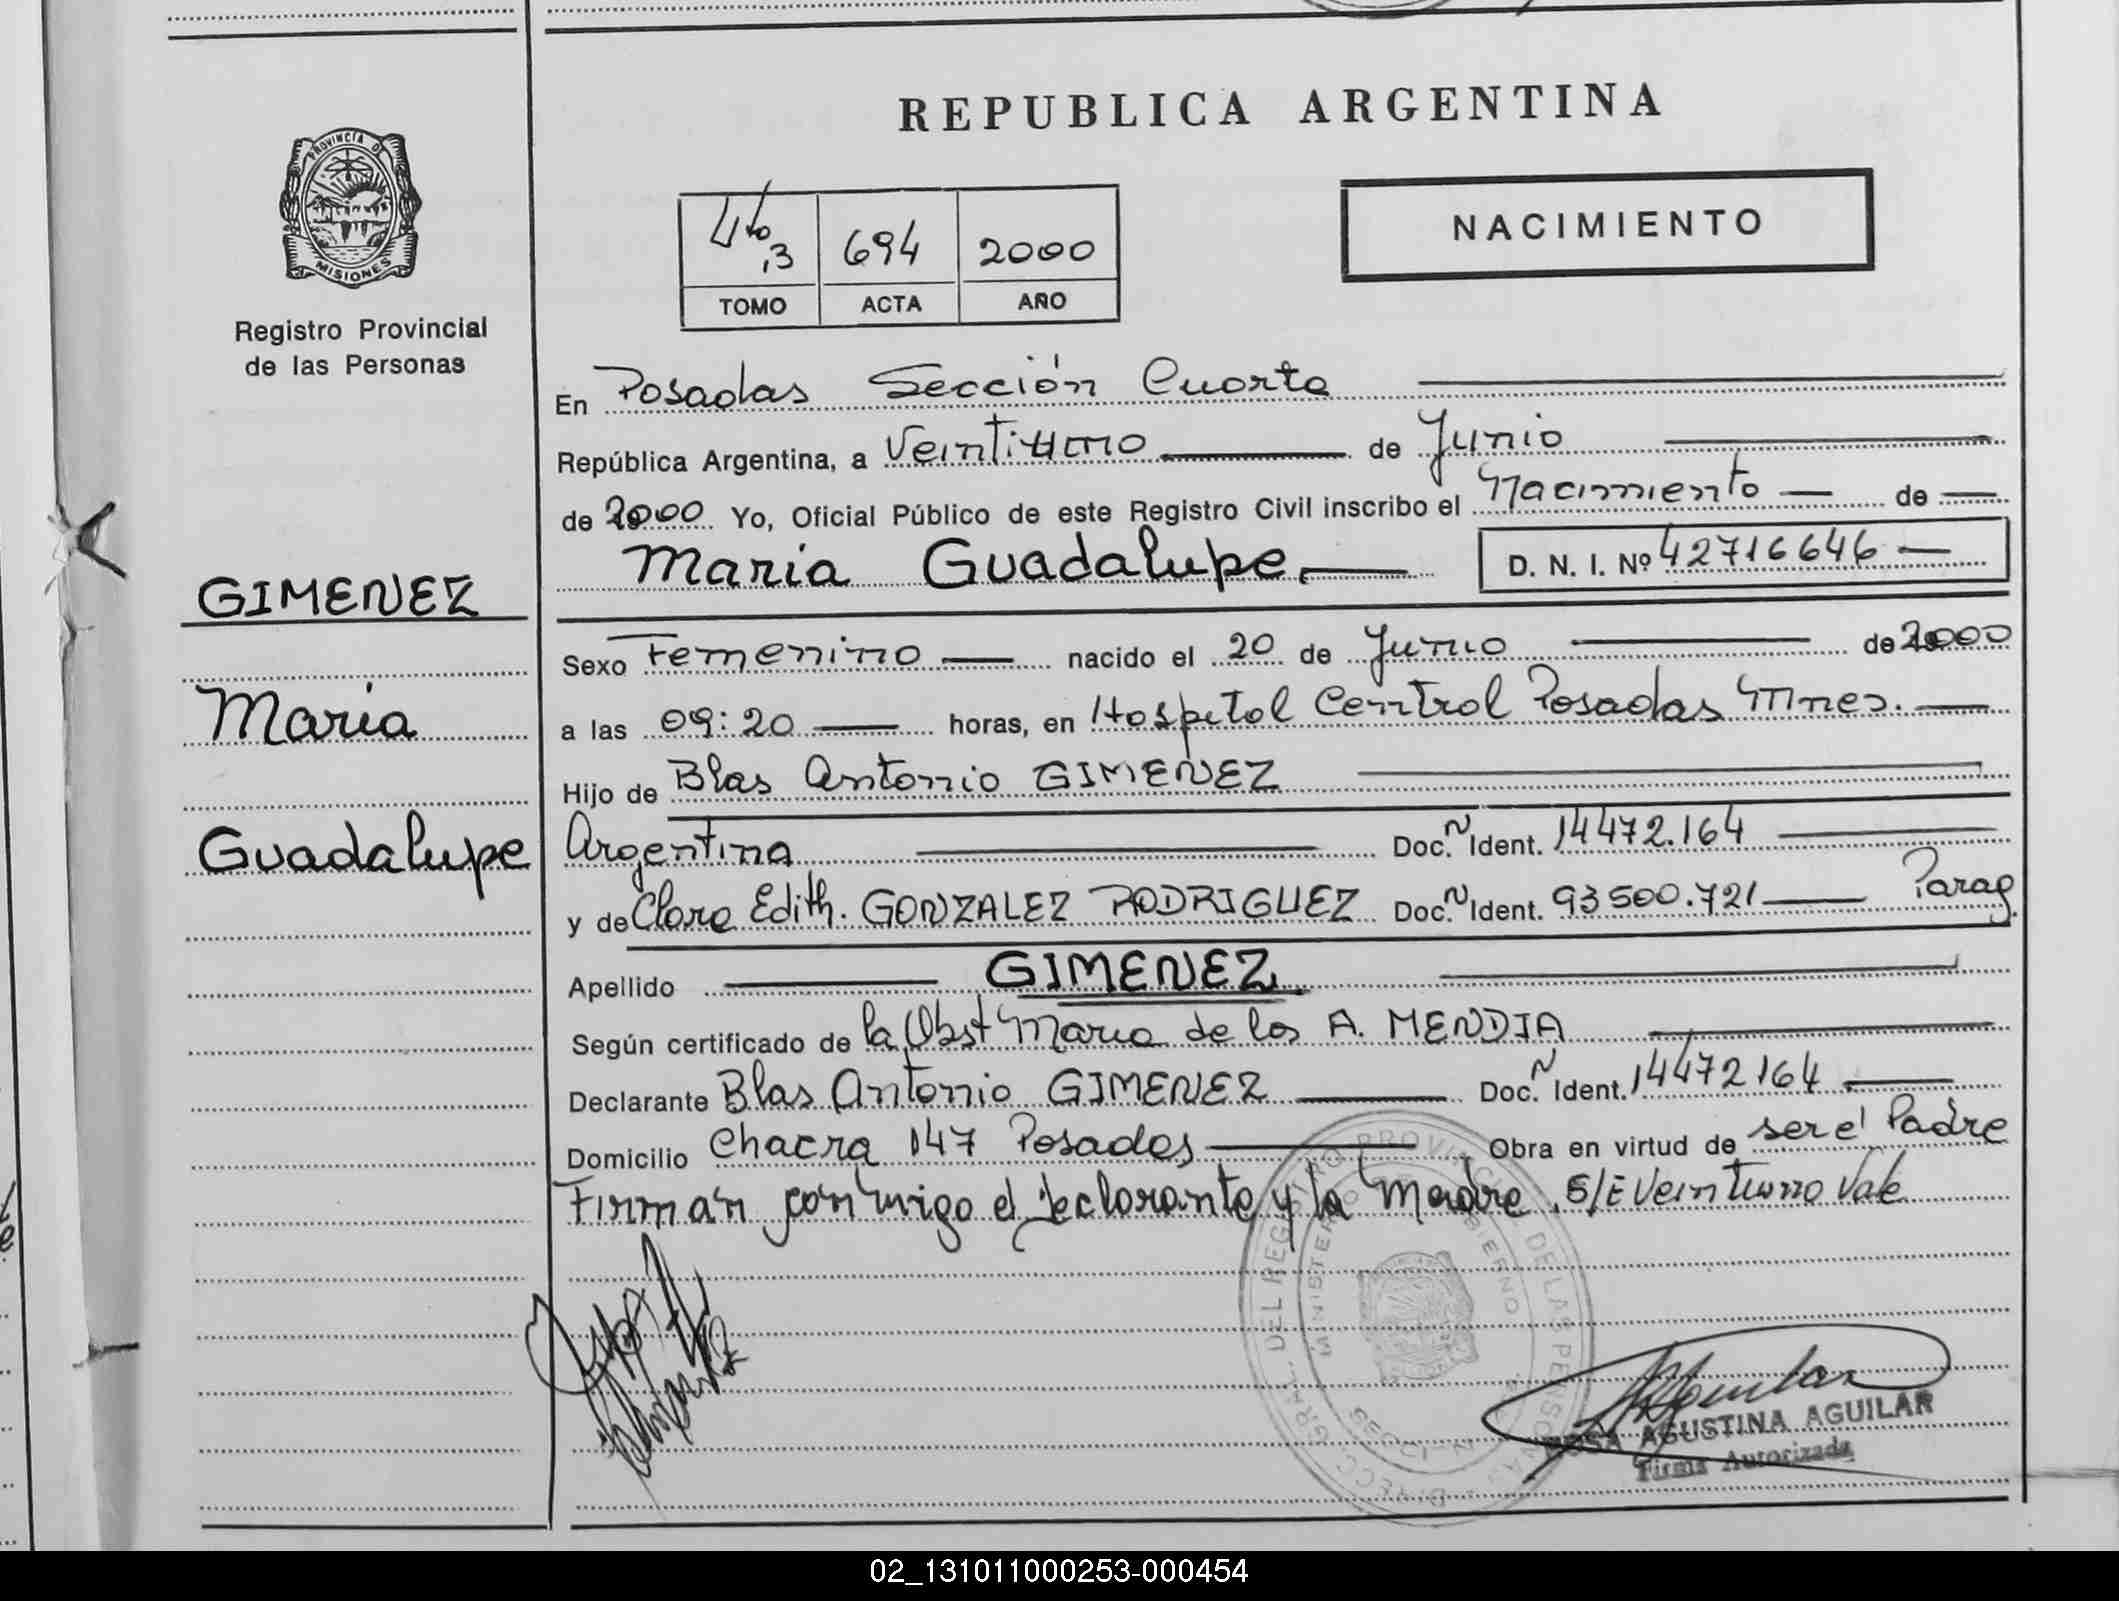 REPUBLICA ARGENTINA
PROVINCIA DE
MISIONES
Registro Provincial
de las Personas
4to, 3 694 2000
TOMO ACTA AÑO
NACIMIENTO
En Posadas Sección Cuarta
República Argentina, a Veintiuno de Junio
de 2000 Yo, Oficial Público de este Registro Civil inscribo el Nacimiento de
Maria Guadalupe. D. N. I. Nº 42716646
GIMENEZ
Maria
Guadalupe
Sexo Femenino nacido el 20 de Junio de 2000
a las 09:20 horas, en Hospital Central Posadas Mnes.
Hijo de Blas Antonio GIMENEZ
Argentina Doc. N Ident. 14472.164
y de Clara Edith. GONZALEZ RODRIGUEZ Doc. N Ident. 93500.721 Parag.
Apellido GIMENEZ
Según certificado de la Obst Maria de los A. MENDIA
Declarante Blas Antonio GIMENEZ Doc. N Ident. 14472164
Domicilio Chacra 147 Posadas Obra en virtud de ser el Padre
Firman conmigo el declarante y la Madre. S/E Veintiuno Vale
DIRECC. GRAL. DEL REGISTRO PROVINCIAL DE LAS PERSONAS
MINISTERIO DE GOBIERNO
MISIONES
ROSA AGUSTINA AGUILAR
Firma Autorizada
02_131011000253-000454